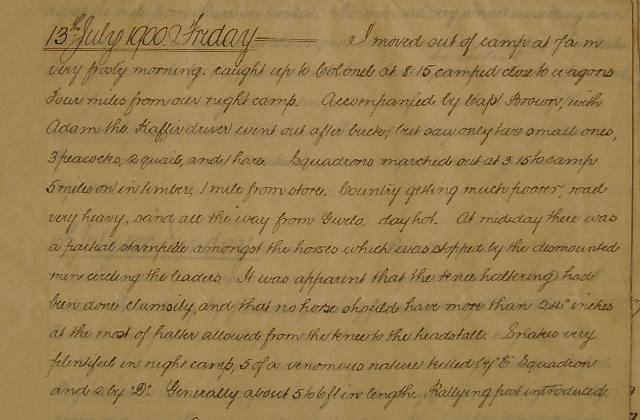 13th July 1900. Friday — I moved out of camp at 7 a m
very frosty morning. caught up to Colonel at 8.15 camped close to wagons
Four miles from our night camp. Accompanied by Capt Brown, with
Adam the Kaffir driver went out after bucks, but saw only two small ones,
3 peacocks, 2 quail, and 1 hare. Squadrons marched out at 3.15 to camp
5 miles on in timber, 1 mile from store. Country getting much poorer, road
very heavy, sand all the way from Gwelo. day hot. At midday there was
a partial stampede amongst the horses which was stopped by the dismounted
men circling the leaders. It was apparent that the knee haltering had
been done clumsily, and that no horse should have more than 24" inches
at the most of halter allowed from the knee to the headstall. Snakes very
plentiful in night camp, 5 of a venomous nature killed by "E" Squadron
and 2 by "D". Generally about 5 to 6 ft in length. Rallying post introduced